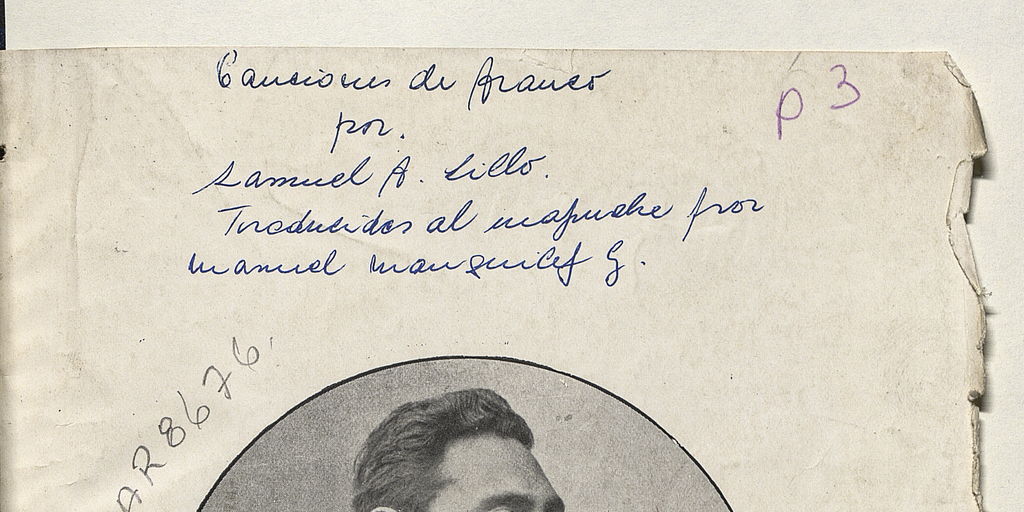 Canciones de Arauco
por.
Samuel A. Lillo.
Traducidas al mapuche por
Manuel Manquilef G.
p 3
AR8676